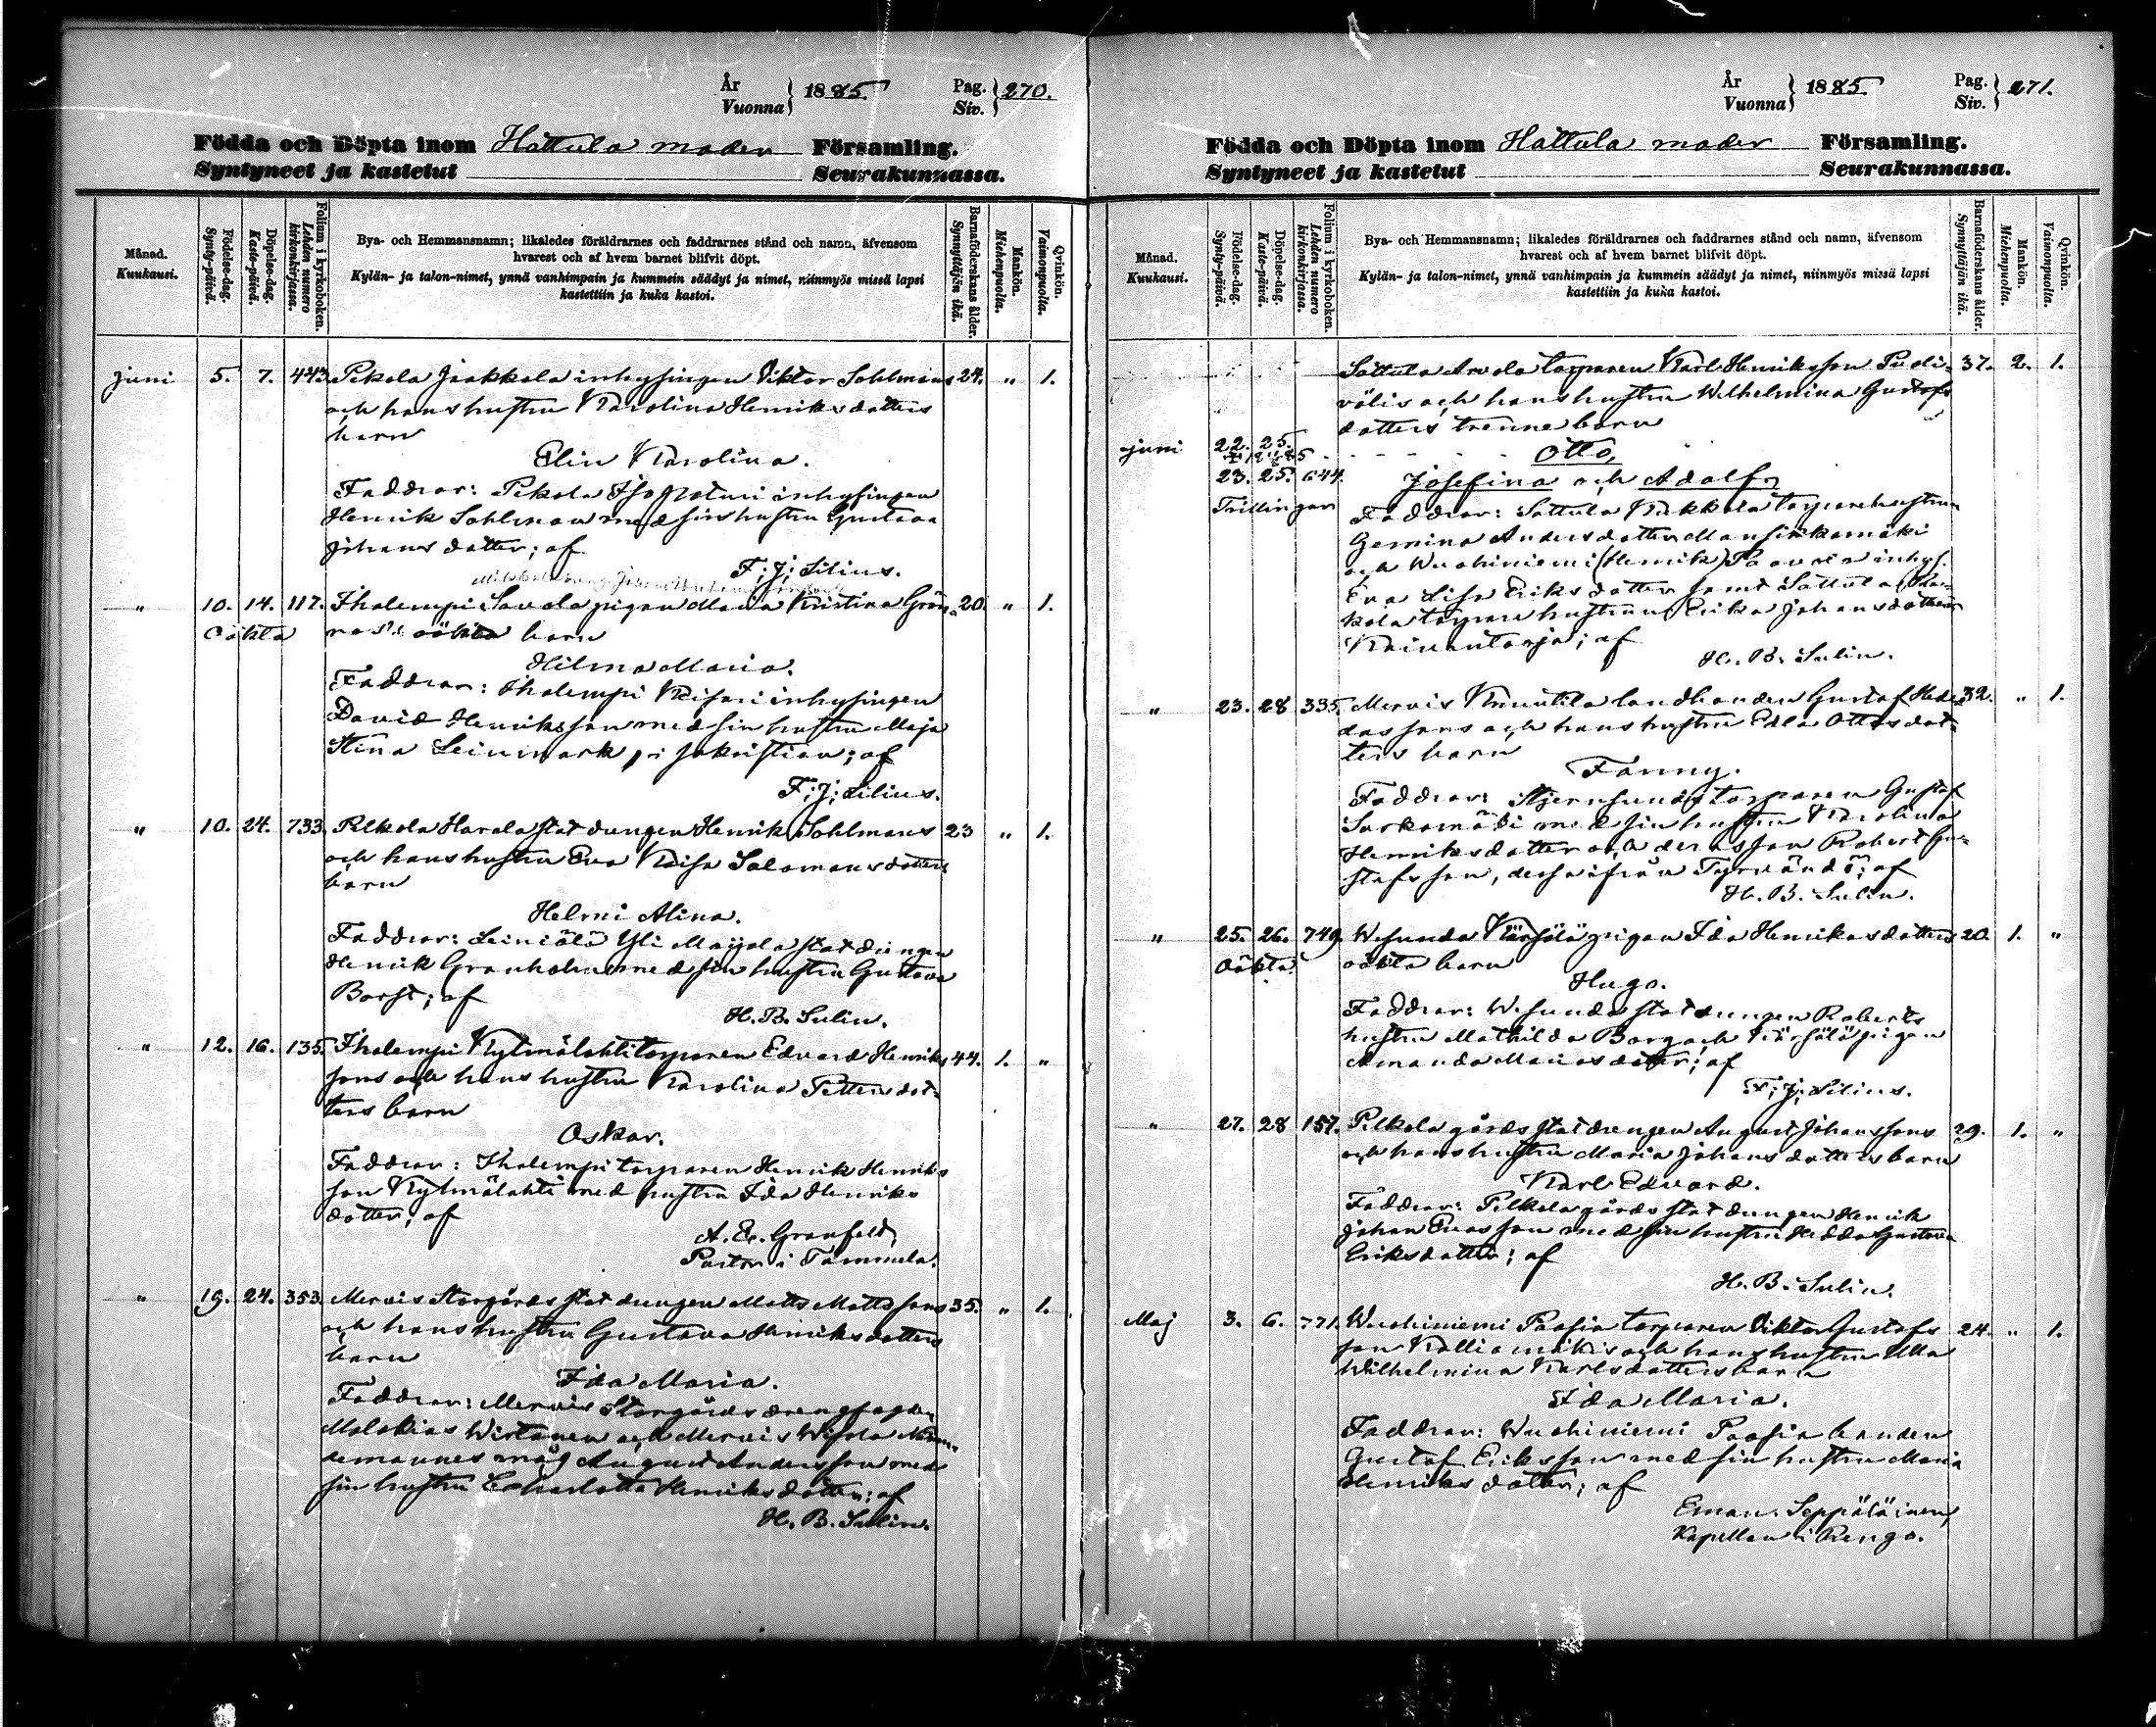 År
Vuonna } 1885.
Pag.
Siv. } 270.
Födda och Döpta inom Hattula moder Församling.
Syntyneet ja kastetut Seurakunnassa.
Månad.
Kuukausi.
Födelse-dag.
Synty-päivä.
Döpelse-dag.
Kaste-päivä.
Folium i kyrkoboken.
Lehden numero
kirkonkirjassa.
Bya- och Hemmansnamn; likaledes föräldrarnes och faddrarnes stånd och namn, äfvensom
hvarest och af hvem barnet blifvit döpt.
Kylän- ja talon-nimet, ynnä vanhimpain ja kummein säädyt ja nimet, niinmyös missä lapsi
kastettiin ja kuka kastoi.
Barnaföderskans ålder.
Synnyttäjän ikä.
Mankön.
Miehenpuolta.
Qvinkön.
Vaimonpuolta.
Juni 5. 7. 443. Pekola Jaakkola inhysingen Viktor Sohlmans 24. " 1.
och hans hustru Karolina Henriksdotters
barn
Elin Karolina.
Faddrar: Pekola inhysingen
Henrik Sohlman med sin hustru Gustava
Johansdotter; af
F; J; Lilius.
" 10. 14. 117. Ihalempi Savola pigan Maria Kristina Grön- 20. " 1.
oäkta oäkta barn
Hilma Maria.
Faddrar: Ihalempi inhysingen
David Henriksson med sin hustru Maja
Stina Leinmark, i sakristian; af
F; J; Lilius.
" 10. 24. 733. Pelkola Harala statdrengen Henrik Sohlmans 23 " 1.
och hans hustru Eva Kaisa Salomonsdotters
barn
Helmi Alina.
Faddrar: Leiniälä Yli Maijala statdrengen
Henrik Granholm med sin hustru Gustava
Borst; af
H. B. Sulin.
" 12. 16. 135. Ihalempi Kylmälahti torparen Edvard Henriks- 44. 1. "
sons och hans hustru Karolina Pettersdot-
ters barn
Oskar.
Faddrar: Ihalempi torparen Henrik Henriks
son Kylmälahti med hustru Ida Henriks
dotter; af
A. E. Granfelt,
Pastor i Tammela.
" 19. 24. 353. Mervis Storgårds statdrengen Matts Mattssons 35. " 1.
och hans hustru Gustava Henriksdotters
barn
Ida Maria.
Faddrar: Mervis Storgårds drengfogden
Malakias Wirtanen och Mervis
måg August Andersson med
sin hustru Charlotta Henriksdotter; af
H. B. Sulin.
År
Vuonna } 1885.
Pag.
Siv. } 271.
Födda och Döpta inom Hattula moder Församling.
Syntyneet ja kastetut Seurakunnassa.
Månad.
Kuukausi.
Födelse-dag.
Synty-päivä.
Döpelse-dag.
Kaste-päivä.
Folium i kyrkoboken.
Lehden numero
kirkonkirjassa.
Bya- och Hemmansnamn; likaledes föräldrarnes och faddrarnes stånd och namn, äfvensom
hvarest och af hvem barnet blifvit döpt.
Kylän- ja talon-nimet, ynnä vanhimpain ja kummein säädyt ja nimet, niinmyös missä lapsi
kastettiin ja kuka kastoi.
Barnaföderskans ålder.
Synnyttäjän ikä.
Mankön.
Miehenpuolta.
Qvinkön.
Vaimonpuolta.
Sattula Arvola torparen Karl Henriksson Pudi- 37. 2. 1.
välis och hans hustru Wilhelmina Gustafs
dotters trenne barn
juni 22. 25. Otto,
23. 25. 644. Josefina och Adolf,
Trillingar Faddrar: Sattula torparehustrun
Gemina Andersdotter Mansikkamäki
och Wuohiniemi (Henrik) Paavola inhys.
Eva Lisa Eriksdotter samt Sattula
torparehustrun Erika Johansdotter
af
H. B. Sulin.
" 23. 28 335. Mervis Knuutila landbonden Gustaf 32. " 1.
sons och hans hustru Edla Ottosdot-
ters barn
Fanny.
Faddrar: Stjernsunds torparen Gustaf
med sin hustru Karolina
Henriksdotter och deras son Robert Gu-
stafsson, dessa ifrån Tyrväntö; af
H. B. Sulin.
" 25. 26. 749. Wesunda Kärsälä pigan Ida Henriksdotters 20. 1. "
Oäkta. oäkta barn
Hugo.
Faddrar: Wesunda statdrengen Roberts
hustru Mathilda Borg och Kärsälä pigan
Amanda af
F; J; Lilius.
" 27. 28 157. Pelkola gårds statdrengen August Johanssons 29. 1. "
och hans hustru Maria Johansdotters barn
Karl Edvard.
Faddrar: Pelkola gårds statdrengen Henrik
Johan Evasson med sin hustru Hedda Gustava
Eriksdotter; af
H. B. Sulin.
Maj 3. 6. 771. Wuohiniemi Paasia torparen Viktor Gustafs 24. " 1.
son Kalliomäkis och hans hustru Ulla
Wilhelmina Karlsdotters barn
Ida Maria.
Faddrar: Wuohiniemi Paasia bonden
Gustaf Eriksson med sin hustru Maria
Henriksdotter; af
Eman. Seppäläinen,
Kapellan i Rengo.